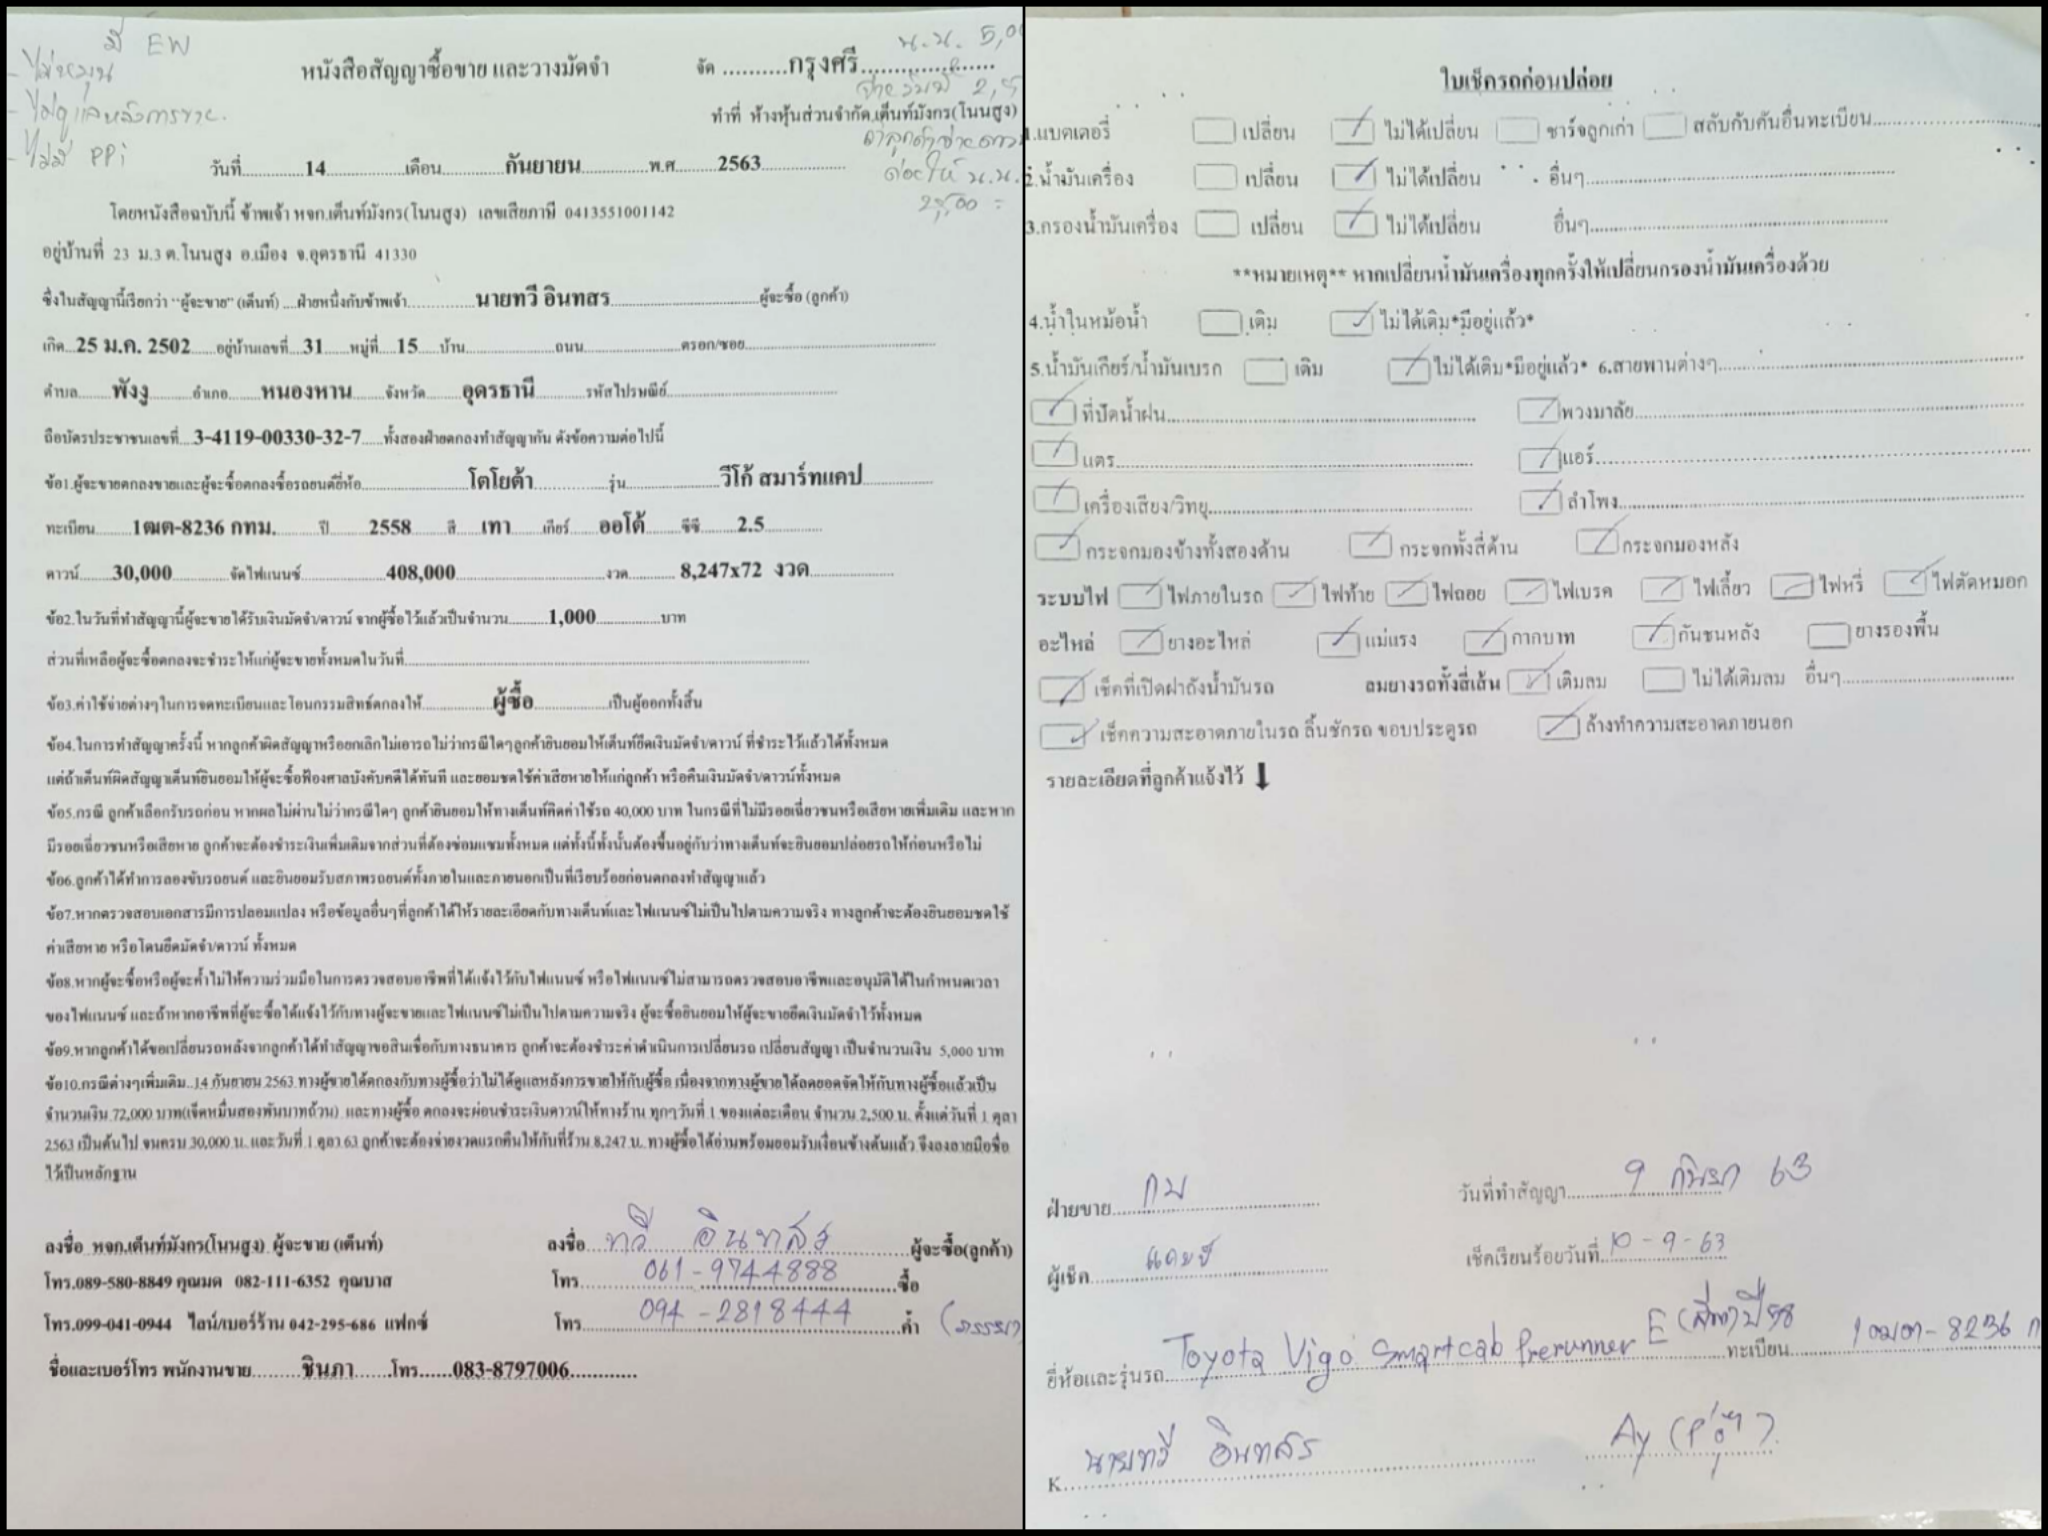 มี EW
- ไม่หมุน
- ไม่ดูแลหลังการขาย.
- ไม่มี PPi
น.น. 5,0
2,5
2,500 =
หนังสือสัญญาซื้อขาย และวางมัดจำ จัด ..........กรุงศรี....................
ทำที่ ห้างหุ้นส่วนจำกัด.เต็นท์มังกร(โนนสูง)
วันที่..............14..................เดือน..............กันยายน...............พ.ศ..........2563....................
โดยหนังสือฉบับนี้ ข้าพเจ้า หจก.เต็นท์มังกร(โนนสูง) เลขเสียภาษี 0413551001142
อยู่บ้านที่ 23 ม.3 ต.โนนสูง อ.เมือง จ.อุดรธานี 41330
ซึ่งในสัญญานี้เรียกว่า “ผู้จะขาย” (เต็นท์) ....ฝ่ายหนึ่งกับข้าพเจ้า...............นายทวี อินทสร...................................ผู้จะซื้อ (ลูกค้า)
เกิด...25 ม.ค. 2502......อยู่บ้านเลขที่....31......หมู่ที่....15....บ้าน....................ถนน......................ตรอก/ซอย.......................................
ตำบล........พังงู..........อำเภอ........หนองหาน........จังหวัด.........อุดรธานี............รหัสไปรษณีย์.......................................
ถือบัตรประชาชนเลขที่....3-4119-00330-32-7.....ทั้งสองฝ่ายตกลงทำสัญญากัน ดังข้อความต่อไปนี้
ข้อ1.ผู้จะขายตกลงขายและผู้จะซื้อตกลงซื้อรถยนต์ยี่ห้อ........................โตโยต้า...............รุ่น....................วีโก้ สมาร์ทแคป................
ทะเบียน.........1ฒต-8236 กทม...........ปี.........2558........สี......เทา......เกียร์......ออโต้........ซีซี........2.5.............
ดาวน์.......30,000.............จัดไฟแนนซ์....................408,000..............................งวด........... 8,247x72 งวด...................
ข้อ2.ในวันที่ทำสัญญานี้ผู้จะขายได้รับเงินมัดจำ/ดาวน์ จากผู้ซื้อไว้แล้วเป็นจำนวน.........1,000...............บาท
ส่วนที่เหลือผู้จะซื้อตกลงจะชำระให้แก่ผู้จะขายทั้งหมดในวันที่..............................................................................
ข้อ3.ค่าใช้จ่ายต่างๆในการจดทะเบียนและโอนกรรมสิทธิ์ตกลงให้................ผู้ซื้อ.................เป็นผู้ออกทั้งสิ้น
ข้อ4.ในการทำสัญญาครั้งนี้ หากลูกค้าผิดสัญญาหรือยกเลิกไม่เอารถไม่ว่ากรณีใดๆลูกค้ายินยอมให้เต็นท์ยึดเงินมัดจำ/ดาวน์ ที่ชำระไว้แล้วได้ทั้งหมด
แต่ถ้าเต็นท์ผิดสัญญาเต็นท์ยินยอมให้ผู้จะซื้อฟ้องศาลบังคับคดีได้ทันที และยอมชดใช้ค่าเสียหายให้แก่ลูกค้า หรือคืนเงินมัดจำ/ดาวน์ทั้งหมด
ข้อ5.กรณี ลูกค้าเลือกรับรถก่อน หากผลไม่ผ่านไม่ว่ากรณีใดๆ ลูกค้ายินยอมให้ทางเต็นท์คิดค่าใช้รถ 40,000 บาท ในกรณีที่ไม่มีรอยเฉี่ยวชนหรือเสียหายเพิ่มเติม และหาก
มีรอยเฉี่ยวชนหรือเสียหาย ลูกค้าจะต้องชำระเงินเพิ่มเติมจากส่วนที่ต้องซ่อมแซมทั้งหมด แต่ทั้งนี้ทั้งนั้นต้องขึ้นอยู่กับว่าทางเต็นท์จะยินยอมปล่อยรถให้ก่อนหรือไม่
ข้อ6.ลูกค้าได้ทำการลองขับรถยนต์ และยินยอมรับสภาพรถยนต์ทั้งภายในและภายนอกเป็นที่เรียบร้อยก่อนตกลงทำสัญญาแล้ว
ข้อ7.หากตรวจสอบเอกสารมีการปลอมแปลง หรือข้อมูลอื่นๆที่ลูกค้าได้ให้รายละเอียดกับทางเต็นท์และไฟแนนซ์ไม่เป็นไปตามความจริง ทางลูกค้าจะต้องยินยอมชดใช้
ค่าเสียหาย หรือโดนยึดมัดจำ/ดาวน์ ทั้งหมด
ข้อ8.หากผู้จะซื้อหรือผู้จะค้ำไม่ให้ความร่วมมือในการตรวจสอบอาชีพที่ได้แจ้งไว้กับไฟแนนซ์ หรือไฟแนนซ์ไม่สามารถตรวจสอบอาชีพและอนุมัติได้ในกำหนดเวลา
ของไฟแนนซ์ และถ้าหากอาชีพที่ผู้จะซื้อได้แจ้งไว้กับทางผู้จะขายและไฟแนนซ์ไม่เป็นไปตามความจริง ผู้จะซื้อยินยอมให้ผู้จะขายยึดเงินมัดจำไว้ทั้งหมด
ข้อ9.หากลูกค้าได้ขอเปลี่ยนรถหลังจากลูกค้าได้ทำสัญญาขอสินเชื่อกับทางธนาคาร ลูกค้าจะต้องชำระค่าดำเนินการเปลี่ยนรถ เปลี่ยนสัญญา เป็นจำนวนเงิน 5,000 บาท
ข้อ10.กรณีต่างๆเพิ่มเติม..14 กันยายน 2563 ทางผู้ขายได้ตกลงกับทางผู้ซื้อว่าไม่ได้ดูแลหลังการขายให้กับผู้ซื้อ เนื่องจากทางผู้ขายได้ลดยอดจัดให้กับทางผู้ซื้อแล้วเป็น
จำนวนเงิน 72,000 บาท(เจ็ดหมื่นสองพันบาทถ้วน) และทางผู้ซื้อ ตกลงจะผ่อนชำระเงินดาวน์ให้ทางร้าน ทุกๆวันที่ 1 ของแต่ละเดือน จำนวน 2,500 บ. ตั้งแต่วันที่ 1 ตุลา
2563 เป็นต้นไป จนครบ 30,000 บ. และวันที่ 1 ตุลา 63 ลูกค้าจะต้องจ่ายงวดแรกคืนให้กับที่ร้าน 8,247 บ. ทางผู้ซื้อได้อ่านพร้อมยอมรับเงื่อนข้างต้นแล้ว จึงลงลายมือชื่อ
ไว้เป็นหลักฐาน
ลงชื่อ หจก.เต็นท์มังกร(โนนสูง) ผู้จะขาย (เต็นท์) ลงชื่อ....ทวี อินทสร..........ผู้จะซื้อ(ลูกค้า)
โทร.089-580-8849 คุณมด 082-111-6352 คุณบาส โทร........061-9744888........ซื้อ
โทร.099-041-0944 ไลน์/เบอร์ร้าน 042-295-686 แฟกซ์ โทร........094-2818444........ค้ำ (ภรรยา)
ชื่อและเบอร์โทร พนักงานขาย.........ชินภา.......โทร......083-8797006............
ใบเช็กรถก่อนปล่อย
1.แบตเตอรี่ เปลี่ยน ไม่ได้เปลี่ยน ชาร์จลูกเก่า สลับกับคันอื่นทะเบียน..............................
2.น้ำมันเครื่อง เปลี่ยน ไม่ได้เปลี่ยน อื่นๆ..................................................
3.กรองน้ำมันเครื่อง เปลี่ยน ไม่ได้เปลี่ยน อื่นๆ..................................................
**หมายเหตุ** หากเปลี่ยนน้ำมันเครื่องทุกครั้งให้เปลี่ยนกรองน้ำมันเครื่องด้วย
4.น้ำในหม้อน้ำ เติม ไม่ได้เติม*มีอยู่แล้ว*
5.น้ำมันเกียร์/น้ำมันเบรก เติม ไม่ได้เติม*มีอยู่แล้ว* 6.สายพานต่างๆ..................................................
ที่ปัดน้ำฝน.................................................. พวงมาลัย..................................................
แตร.................................................. แอร์..................................................
เครื่องเสียง/วิทยุ.................................................. ลำโพง..................................................
กระจกมองข้างทั้งสองด้าน กระจกทั้งสี่ด้าน กระจกมองหลัง
ระบบไฟ ไฟภายในรถ ไฟท้าย ไฟถอย ไฟเบรค ไฟเลี้ยว ไฟหรี่ ไฟตัดหมอก
อะไหล่ ยางอะไหล่ แม่แรง กากบาท กันชนหลัง ยางรองพื้น
เช็คที่เปิดฝาถังน้ำมันรถ ลมยางรถทั้งสี่เส้น เติมลม ไม่ได้เติมลม อื่นๆ..............................
เช็คความสะอาดภายในรถ ลิ้นชักรถ ขอบประตูรถ ล้างทำความสะอาดภายนอก
รายละเอียดที่ลูกค้าแจ้งไว้ ⬇
ฝ่ายขาย....กบ.................... วันที่ทำสัญญา........9 กันยา 63
ผู้เช็ค.................... เช็คเรียบร้อยวันที่..10-9-63
ยี่ห้อและรุ่นรถ Toyota Vigo Smartcab Prerunner E (สีเทา) ปี 58 ทะเบียน........1ฒต-8236 ก
K....นายทวี อินทสร.................... Ay